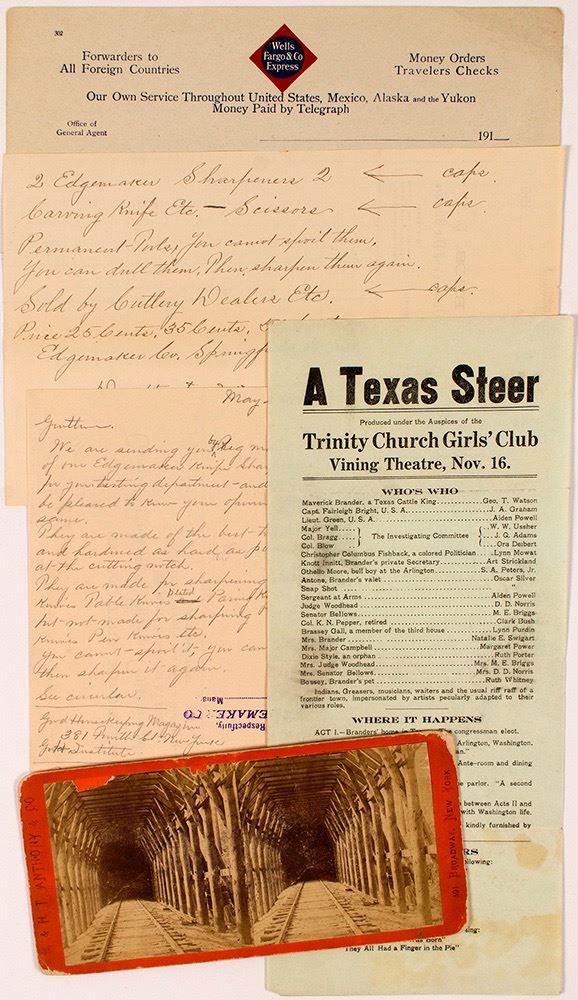 302
Wells
Fargo & Co
Express
Forwarders to
All Foreign Countries
Money Orders
Travelers Checks
Our Own Service Throughout United States, Mexico, Alaska and the Yukon
Money Paid by Telegraph
Office of
General Agent
191
2 Edgemaker Sharpeners 2 ← caps.
Carving Knife Etc. — Scissors ← caps.
Permanent Tools, You cannot spoil them.
You can dull them, Then sharpen them again.
Sold by Cutlery Dealers Etc. ← caps.
Price 25 Cents, 35 Cents,
Edgemaker Co. Springf
May
Gentlm.
We are sending you by Reg m
of our Edgemaker Knife Sha
for your testing department and
be pleased to know your opin
same.
They are made of the best
and hardened as hard as p
at the cutting notch.
They are made for sharpening
Knives Table Knives Plated Paring K
but not made for sharpening
Knives Pen Knives etc.
You cannot spoil it, you can
then sharpen it again.
See circular.
Respectfully,
EMAKER CO
Mana
Good Housekeeping Magazine
381 Fourth Ave New York
Institute
A Texas Steer
Produced under the Auspices of the
Trinity Church Girls' Club
Vining Theatre, Nov. 16.
WHO'S WHO
Maverick Brander, a Texas Cattle King Geo. T. Watson
Capt. Fairleigh Bright, U. S. A. J. A. Graham
Lieut. Green, U. S. A. Alden Powell
Major Yell W. W. Ussher
Col. Bragg The Investigating Committee J. Q. Adams
Col. Blow Ora Deibert
Christopher Columbus Fishback, a colored Politician Lynn Mowat
Knott Innitt, Brander's private Secretary Art Strickland
Othello Moore, bell boy at the Arlington S. A. Peters, Jr.
Antone, Brander's valet Oscar Silver
Snap Shot "
Sergeant at Arms Alden Powell
Judge Woodhead D. D. Norris
Senator Bellows M. E. Briggs
Col. K. N. Pepper, retired Clark Bush
Brassey Gall, a member of the third house Lynn Purdin
Mrs. Brander Natalie E. Swigart
Mrs. Major Campbell Margaret Power
Dixie Style, an orphan Ruth Porter
Mrs. Judge Woodhead Mrs. M. E. Briggs
Mrs. Senator Bellows Mrs. D. D. Norris
Bossey, Brander's pet Ruth Whitney
Indians, Greasers, musicians, waiters and the usual riff raff of a
frontier town, impersonated by artists peculiarly adapted to their
various roles.
WHERE IT HAPPENS
ACT I.—Branders' home in The congressman elect.
Arlington, Washington.
an."
Ante-room and dining
parlor. "A second
between Acts II and
with Washington life.
kindly furnished by
RS
llowing:
ing:
was Born"
They All Had a Finger in the Pie"
E. & H. T. ANTHONY & CO.
591 BROADWAY, NEW YORK.